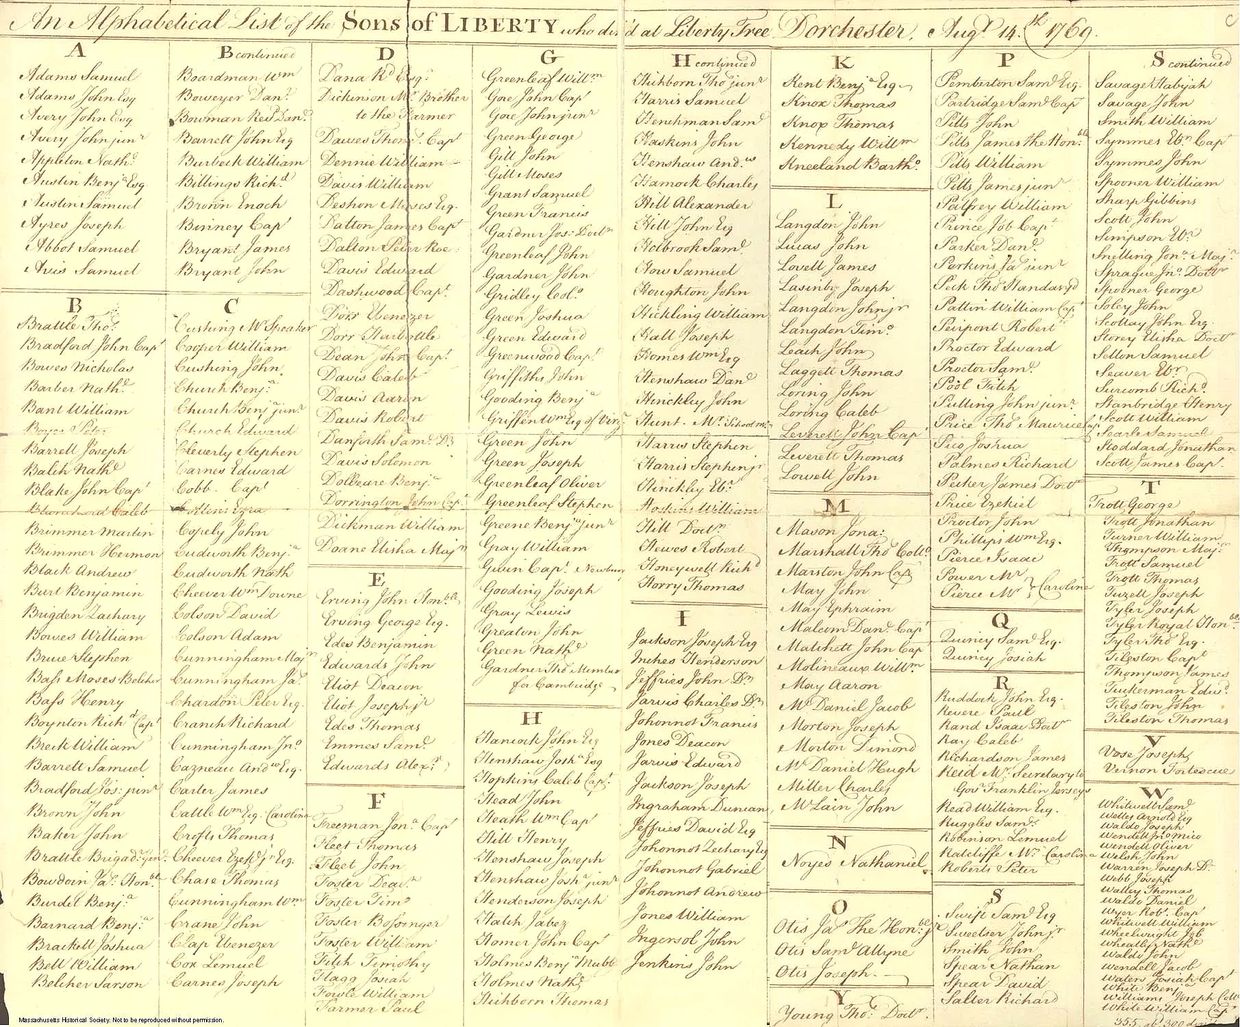 An Alphabetical List of the Sons of LIBERTY who din'd at Liberty Tree Dorchester. Augt. 14.th 1769.
A
Adams Samuel
Adams John Esq
Avery John Esq
Avery John junr
Appleton Nathl.
Austin Benja Esq
Austin Samuel
Ayres Joseph
Abbot Samuel
Avis Samuel
B
Brattle Thos.
Bradford John Capt
Bowes Nicholas
Barber Nathl.
Bant William
Barrell Joseph
Balch Nathl
Blake John Capt
Blanchard Caleb
Brimmer Martin
Brimmer Herman
Black Andrew
Burt Benjamin
Brigden Zachary
Bowes William
Bruce Stephen
Bass Moses Belcher
Bass Henry
Boynton Richd Capt
Breck William
Barrett Samuel
Bradford Jos: junr
Brown John
Baker John
Bowdoin Jas. Honble
Burdet Benja
Barnard Benja
Brackett Joshua
Bell William
Belcher Sarson
B continued
Boardman Wm
Boweyer Danl.
Barrett John Esq
Burbeck William
Billings Richd
Brown Enoch
Binney Capt
Bryant James
Bryant John
C
Cushing Mr Speaker
Cooper William
Cushing John
Church Benja
Church Benja junr
Church Edward
Cleverly Stephen
Carnes Edward
Cobb Capt
Collins Ezra
Copely John
Cudworth Benja
Cudworth Nath
Cheever Wm Downe
Colson David
Colson Adam
Cunningham Majr
Cunningham Jas.
Chardon Peter Esq.
Cranch Richard
Cunningham Jno
Cazneau Andw Esq.
Carter James
Cattle Wm Esq. Carolina
Crofts Thomas
Cheever Ezekl jr Esq.
Chase Thomas
Cunningham Wm
Crane John
Clap Ebenezer
Cox Lemuel
Carnes Joseph
D
Dana Rd Esqr.
Dickinson Mr. Brother
to the Farmer
Dawes Thos. Capt
Dennie William
Davis William
Deshon Moses Esq.
Dalton James Capt
Davis Edward
Dashwood Capt.
Dorr Ebenezer
Dorr Harbottle
Doan John Capt
Davis Caleb
Davis Aaron
Davis Robert
Danforth Saml. Dr
Davis Solomon
Dolbeare Benja
Dorrington John Capt
Dickman William
Doane Elisha Majr
E
Erving John Honble
Erving George Esq.
Edes Benjamin
Edwards John
Eliot Deacon
Eliot Joseph jr
Edes Thomas
Emmes Saml.
Edwards Alexr.
F
Freeman Jona. Capt
Fleet Thomas
Fleet John
Foster Deacn
Foster Timo
Foster Bossenger
Foster William
Fitch Timothy
Flagg Josiah
Fowle William
Farmer Paul
G
Greenleaf Willm
Gore John Capt
Gore John junr
Green George
Gill John
Gill Moses
Grant Samuel
Green Francis
Gardner Jos: Doctr
Greenleaf John
Gardner John
Gridley Colo.
Green Joshua
Green Edward
Greenwood Capt.
Griffiths John
Gooding Benja
Griffen Wm Esq of Virga
Green John
Green Joseph
Greenleaf Oliver
Greenleaf Stephen
Greene Benja junr
Gray William
Gwin Capt. Newbury
Gooding Joseph
Gray Lewis
Greaton John
Green Nathl
Gardner Thos Member
for Cambridge
H
Hancock John Esq
Henshaw Josha Esq
Hopkins Caleb Capt
Head John
Heath Wm Capt
Hill Henry
Henshaw Joseph
Henshaw Josha junr
Henderson Joseph
Hatch Jabez
Homer John Capt
Holmes Benja Mubb
Holmes Nathl
Hichborn Thomas
H continued
Hichborn Thos junr
Harris Samuel
Henchman Saml
Haskins John
Henshaw Andw.
Hamock Charles
Hill Alexander
Hill John Esq
Holbrook Saml.
How Samuel
Houghton John
Hickling William
Hall Joseph
Homes Wm Esq
Henshaw Danl
Hinckley John
Hunt Mr. Schoolmr
Harris Stephen
Harris Stephen jr
Hinckley Ebr.
Hoskins William
Hill Doctr.
Hewes Robert
Honeywell Richd
Horry Thomas
I
Jackson Joseph Esq
Inches Henderson
Jeffries John Dr
Jarvis Charles Dr
Johonnot Francis
Jones Deacon
Jarvis Edward
Jackson Joseph
Ingraham Duncan
Jeffries David Esq
Johonnot Zechary Esq
Johonnot Gabriel
Johonnot Andrew
Jones William
Ingersol John
Jenkins John
K
Kent Benja Esq.
Knox Thomas
Knox Thomas
Kennedy Willm
Kneeland Bartho.
L
Langdon John
Lucas John
Lovell James
Lasinby Joseph
Langdon John jr
Langdon Timo.
Leach John
Laggett Thomas
Loring John
Loring Caleb
Leverett John Capt
Leverett Thomas
Lowell John
M
Mason Jona.
Marshall Thos Collo.
Marston John Capt
May John
May Ephraim
Malcom Danl. Capt
Matchett John Capt
Molineaux Willm
May Aaron
Mc Daniel Jacob
Morton Joseph
Morton Dimond
Mc Daniel Hugh
Miller Charles
Mc Lain John
N
Noyes Nathaniel
O
Otis Jas The Honble
Otis Saml Allyne
Otis Joseph
Y
Young Thos. Doctr.
P
Pemberton Saml Esq.
Partridge Saml Capt
Pitts John
Pitts James the Honble
Pitts William
Pitts James junr
Palfrey William
Prince Job Capt
Parker Danl.
Perkins Jas junr
Peck Thos Handasyd
Pattin William Capt
Peirpont Robert
Proctor Edward
Proctor Saml.
Pool Fitch
Pulling John junr.
Price Thos Maurice Capt
Pico Joshua
Palmes Richard
Pecker James Doctr
Price Ezekiel
Proctor John
Phillips Wm Esq.
Pierce Isaac
Power Mr
Pierce Mr } Carolina
Q
Quincy Saml Esq.
Quincy Josiah
R
Ruddock John Esq.
Revere Paul
Rand Isaac Doctr
Ray Caleb
Richardson James
Reed Mr. Secretary to
Govr Franklin Jerseys
Read William Esq.
Ruggles Saml.
Robinson Lemuel
Radcliffe Mr. Carolina
Roberts Peter
S
Swift Saml Esq
Sweetser John jr
Smith John
Spear Nathan
Spear David
Salter Richard
S continued
Savage Habijah
Savage John
Smith William
Symmes Ebr Capt
Symmes John
Spooner William
Sharp Gibbins
Scott John
Simpson Ebr.
Snelling Jona. Majr.
Sprague Jno. Doctr
Spooner George
Soley John
Scollay John Esq
Storey Elisha Doctr
Sellon Samuel
Seaver Ebr.
Surcomb Richd
Stanbridge Henry
Scott William
Searle Samuel
Stoddard Jonathan
Scott James Capt.
T
Trott George
Trott Jonathan
Turner William
Thompson Majr
Trott Samuel
Trott Thomas
Tuzell Joseph
Tyler Joseph
Tyler Royal Honble.
Tyler Thos Esq.
Tileston Capt
Thompson James
Tuckerman Edwd.
Tileston John
Tileston Thomas
V
Vose Joseph
Vernon Fortescue
W
Whitwell Saml
Welles Arnold Esq
Waldo Joseph
Wendell Jno Mico
Wendell Oliver
Welsh John
Warren Joseph Dr
Webb Joseph
Walley Thomas
Waldo Daniel
Wyer Robt. Capt
Whitwell William
Wheelwright Job
Wheatley Nathl
Waldo John
Wendell Jacob
Waters Josiah Capt
White Benja
Williams Joseph Collo
White William Capt
355
Massachusetts Historical Society. Not to be reproduced without permission.